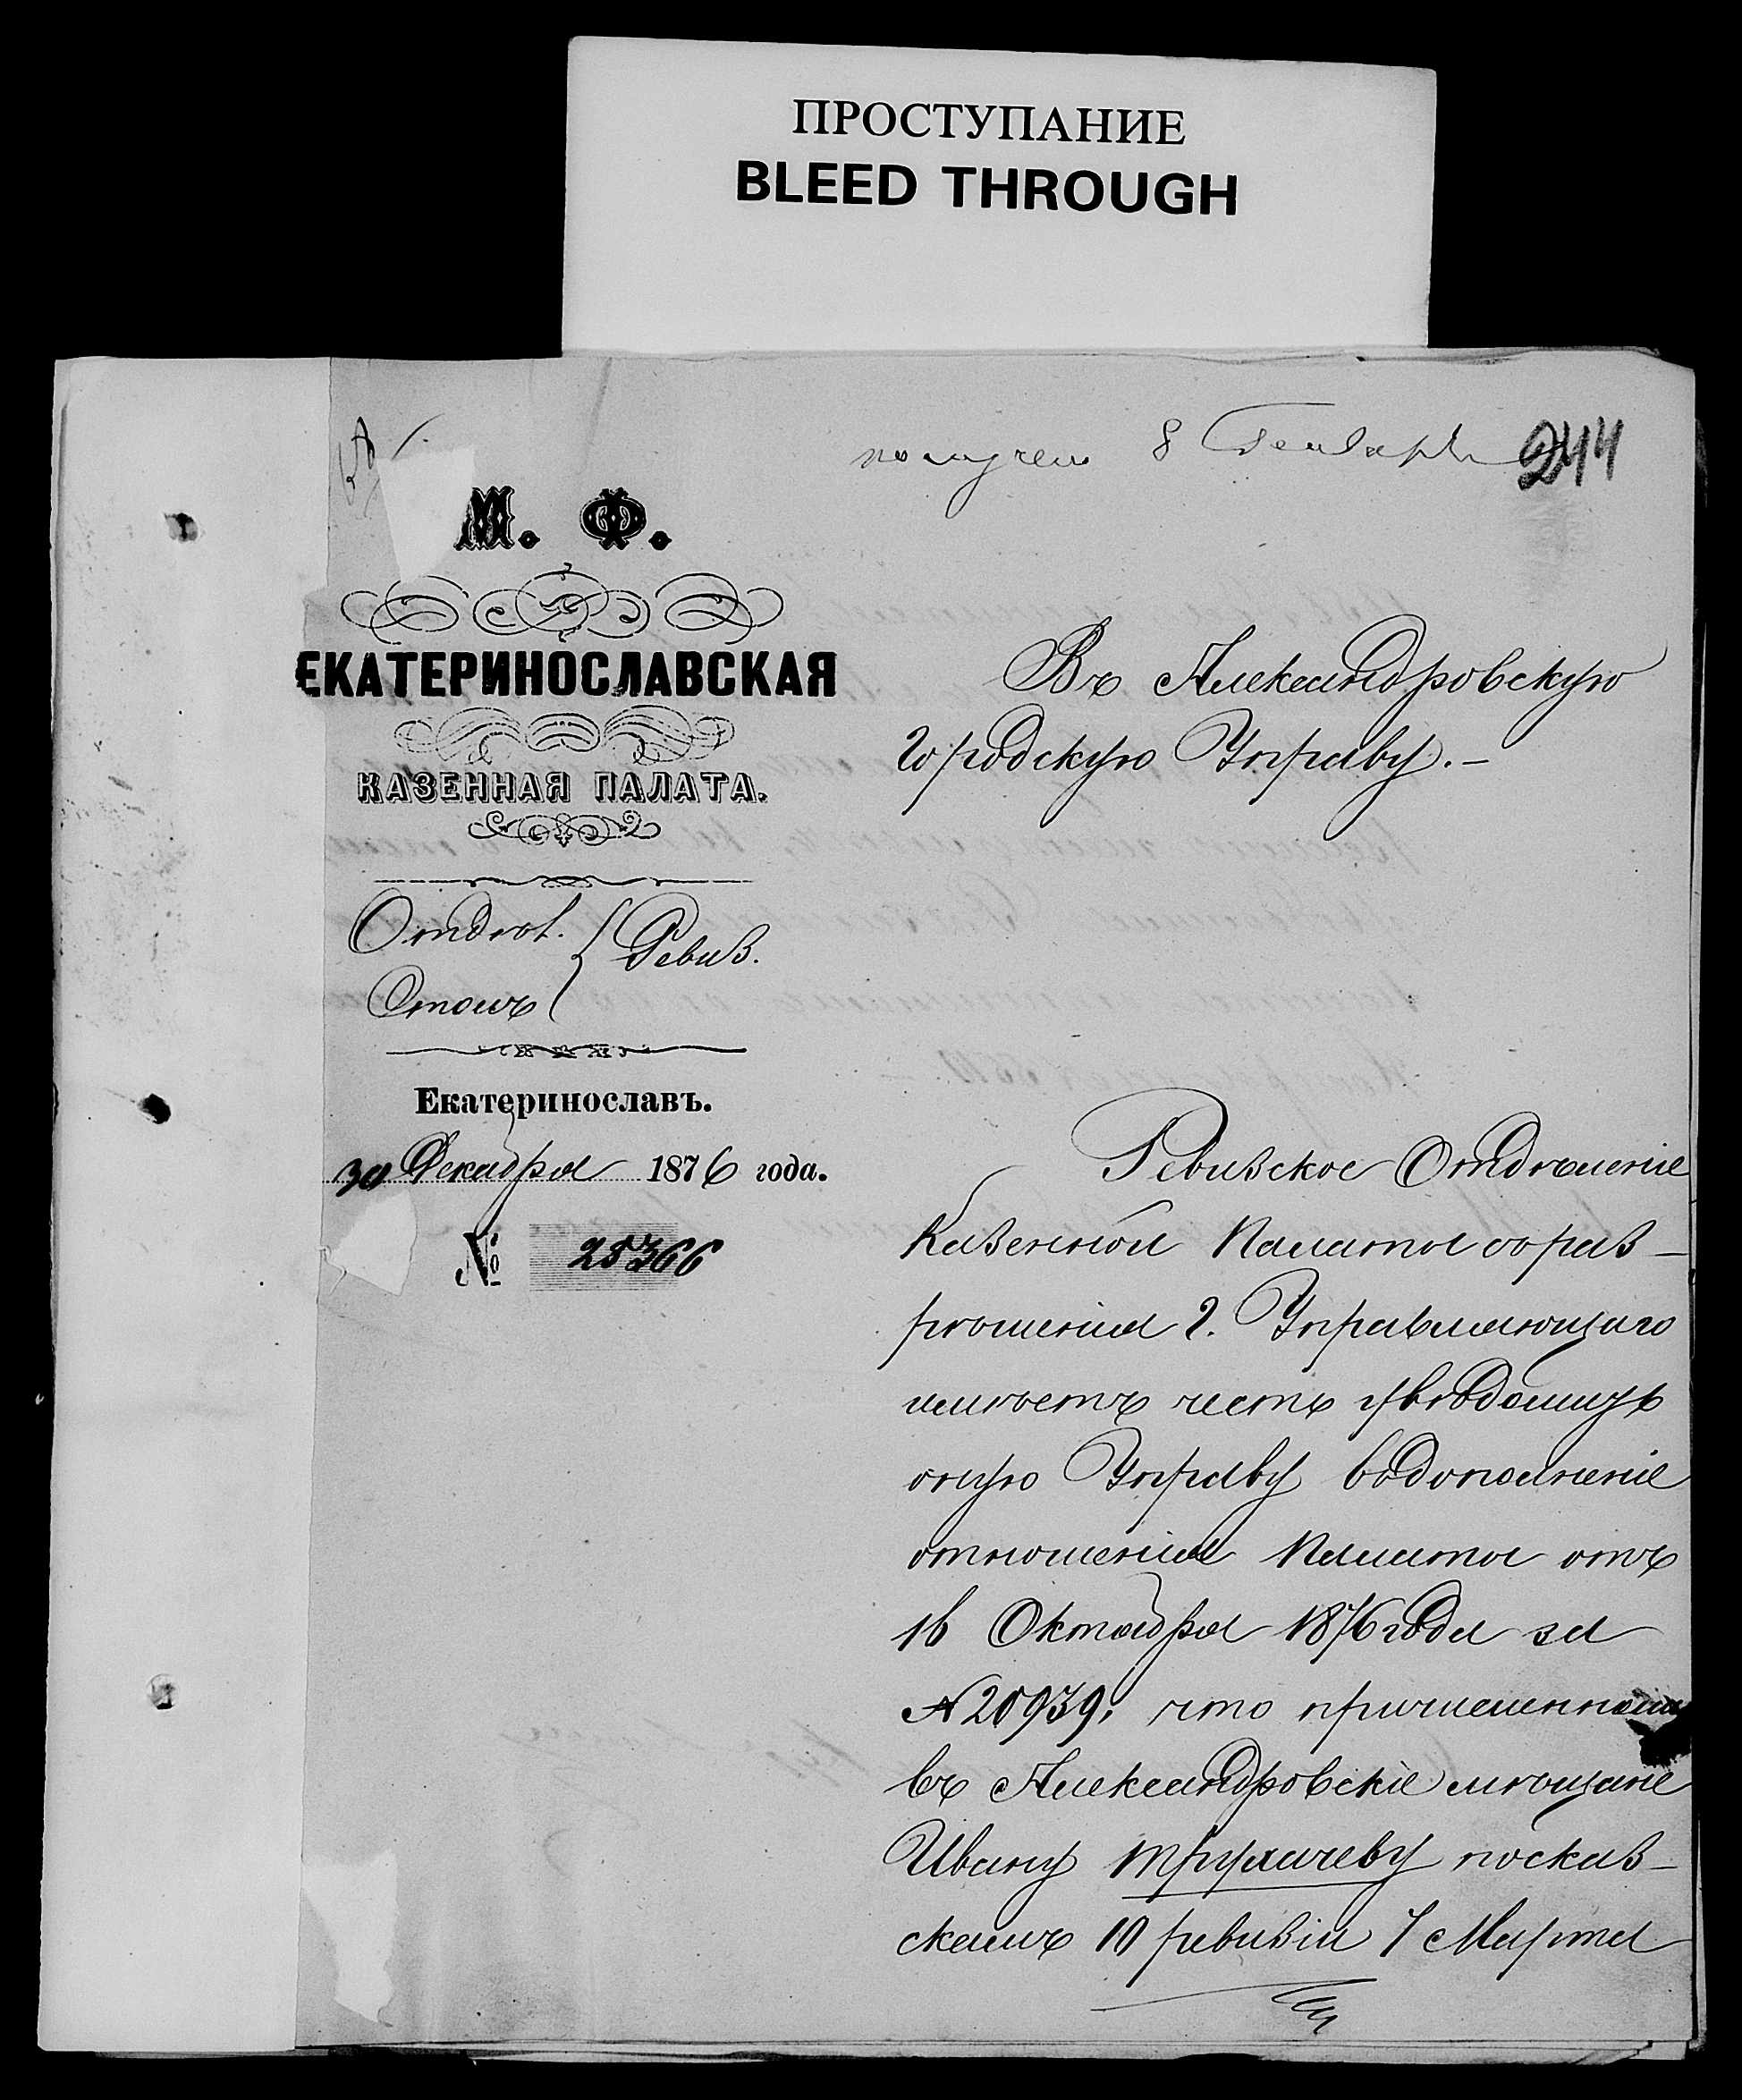 ПРОСТУПАНИЕ
BLEED THROUGH
получен 8 Генваря
244
М. Ф.
ЕКАТЕРИНОСЛАВСКАЯ
КАЗЕННАЯ ПАЛАТА.
Отдѣл. Ревиз.
Столъ
Екатеринославъ.
30 Декабря 1876 года.
№ 25366
Въ Александровскую
городскую Управу.-
Ревизское Отдѣленіе
Казенной Палаты съ раз-
рѣшенія г. Управляющаго
имѣетъ честь увѣдомить
оную Управу въ дополненіе
отношенія Палаты отъ
16 Октября 1876 года за
№ 20939, что причисленному
въ Александровскіе мѣщане
Ивану Трухачеву по сказ-
камъ 10 ревизіи 7 Марта